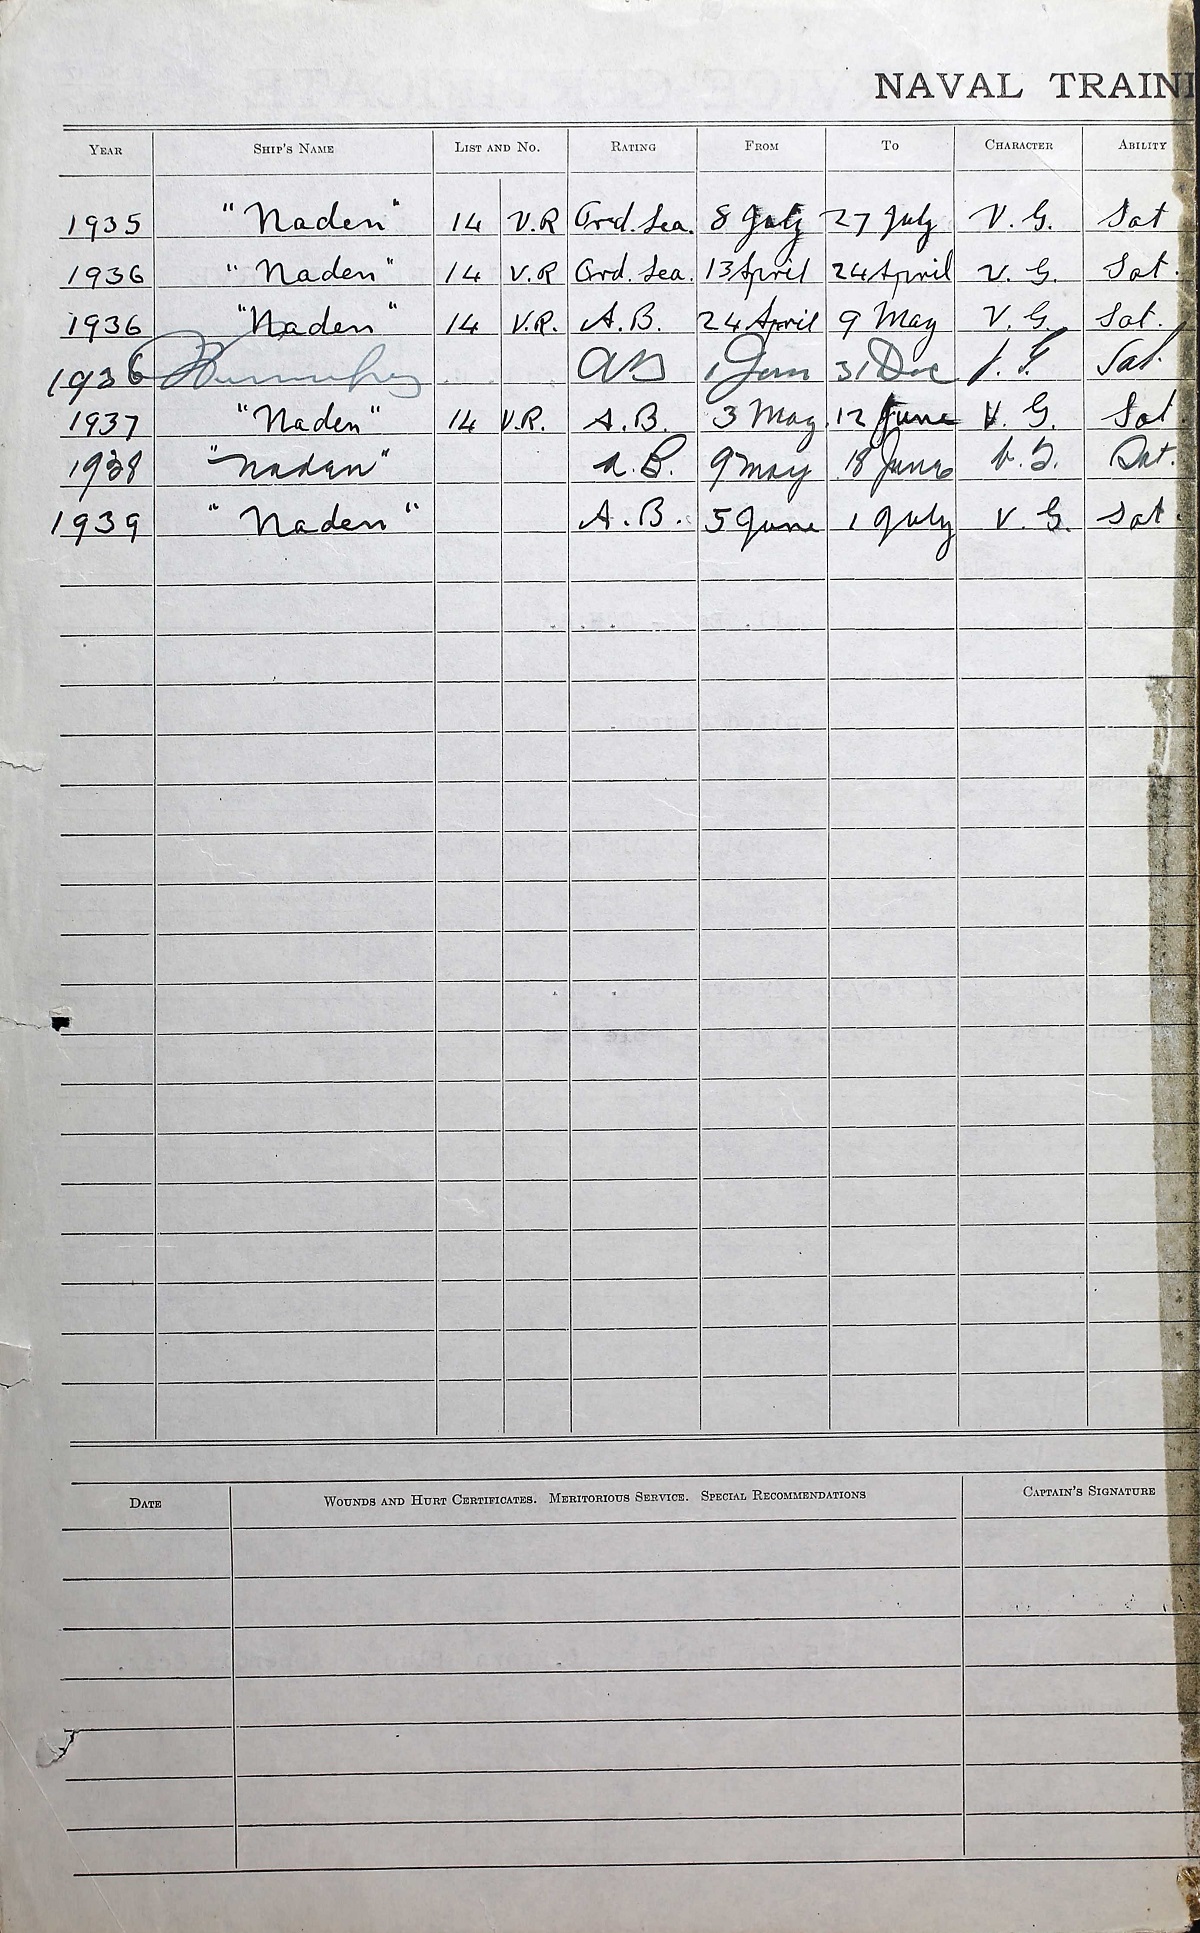 NAVAL TRAINI
YEAR SHIP'S NAME LIST AND NO. RATING FROM TO CHARACTER ABILITY
1935 "Naden" 14 V.R Ord. Sea. 8 July 27 July V. G. Sat
1936 "Naden" 14 V.R Ord. Sea. 13 April 24 April V. G. Sat.
1936 "Naden" 14 V.R. A.B. 24 April 9 May V. G. Sat.
1936 AB 1 Jan 31 Dec Sat.
1937 "Naden" 14 V.R. A.B. 3 May 12 June V. G. Sat.
1938 "Naden" A.B. 9 May 18 June V. G. Sat.
1939 "Naden" A.B. 5 June 1 July V. G. Sat.
DATE WOUNDS AND HURT CERTIFICATES. MERITORIOUS SERVICE. SPECIAL RECOMMENDATIONS CAPTAIN'S SIGNATURE